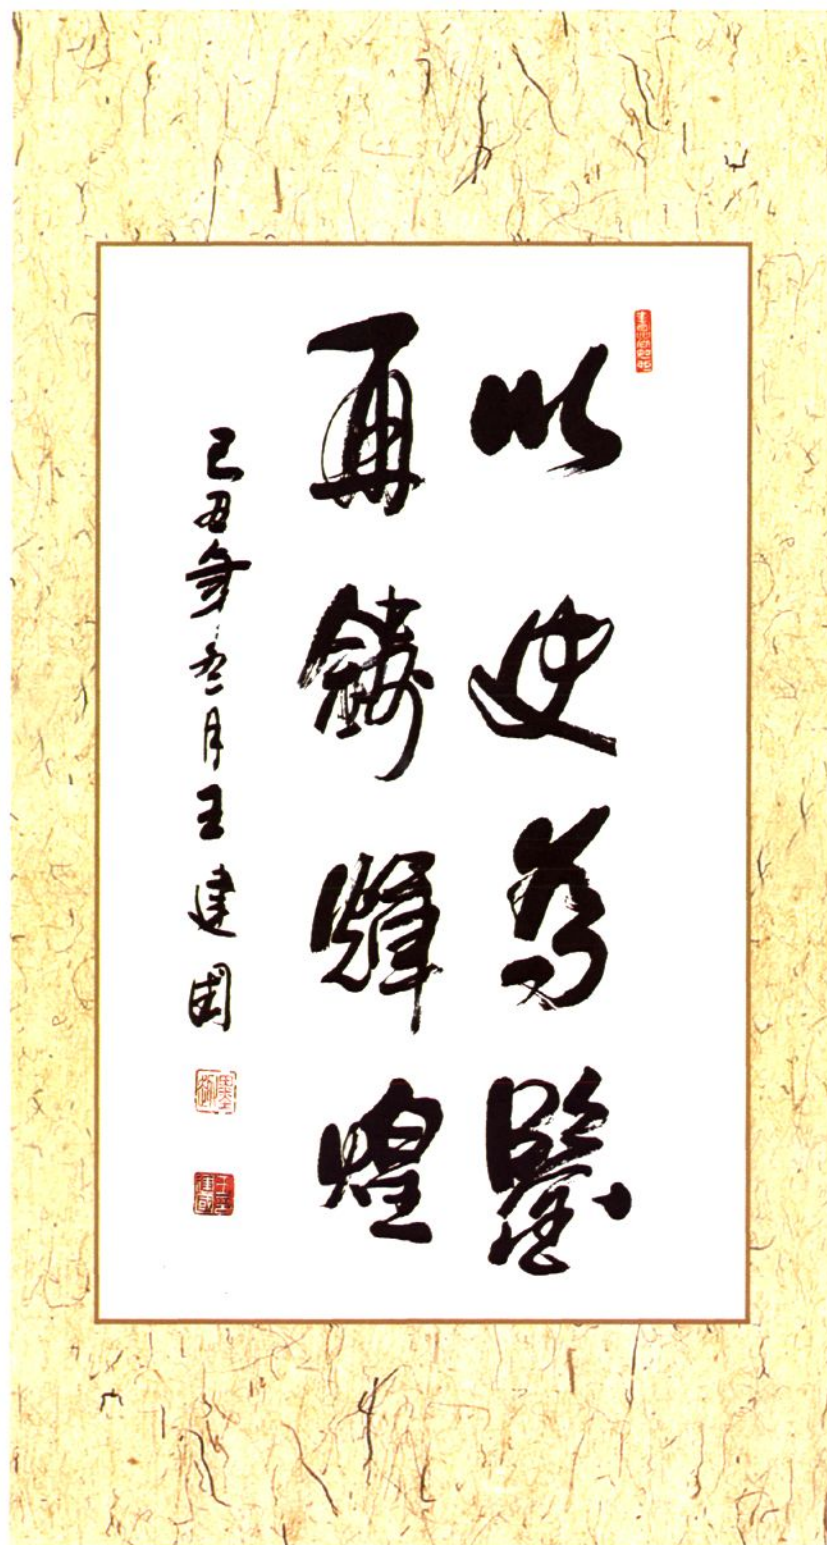 以史為鑒
再鑄輝煌
己丑年冬月王建國